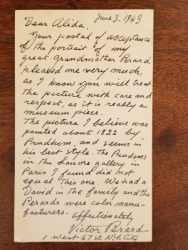 June 3. 1943
Dear Alida
Your postal of acceptance
of the portrait of my
great grandmother Perard
pleased me very much,
as I know you will treat
the picture with care and
respect, as it is really a
museum piece.
The picture I believe was
painted about 1822 by
Prudhon and seems in
his best style. The Prudons
in the Louvre gallery in
Paris I found did not
equal this one. We had a
David in the family and the
Perards were color manu-
facturers.
affectionately
Victor Perard
1 West 67 St. N.Y. City